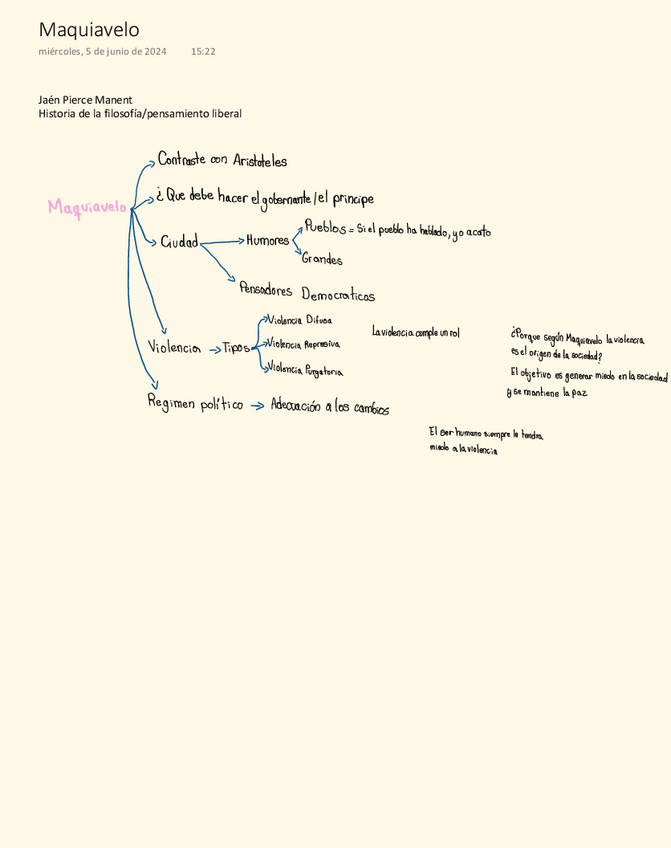 Maquiavelo
miércoles, 5 de junio de 2024 15:22
Jaén Pierce Manent
Historia de la filosofía/pensamiento liberal
Maquiavelo
Contraste con Aristoteles
¿Que debe hacer el gobernante/el principe
Ciudad
Humores
Pueblos = Si el pueblo ha hablado, yo acato
Grandes
Pensadores Democraticos
Violencia
Tipos
Violencia Difusa
Violencia Represiva
Violencia Purgatoria
La violencia cumple un rol
¿Porque según Maquiavelo la violencia
es el origen de la sociedad?
El objetivo es generar miedo en la sociedad
y se mantiene la paz
Regimen político
Adecuación a los cambios
El ser humano siempre le tendra
miedo a la violencia